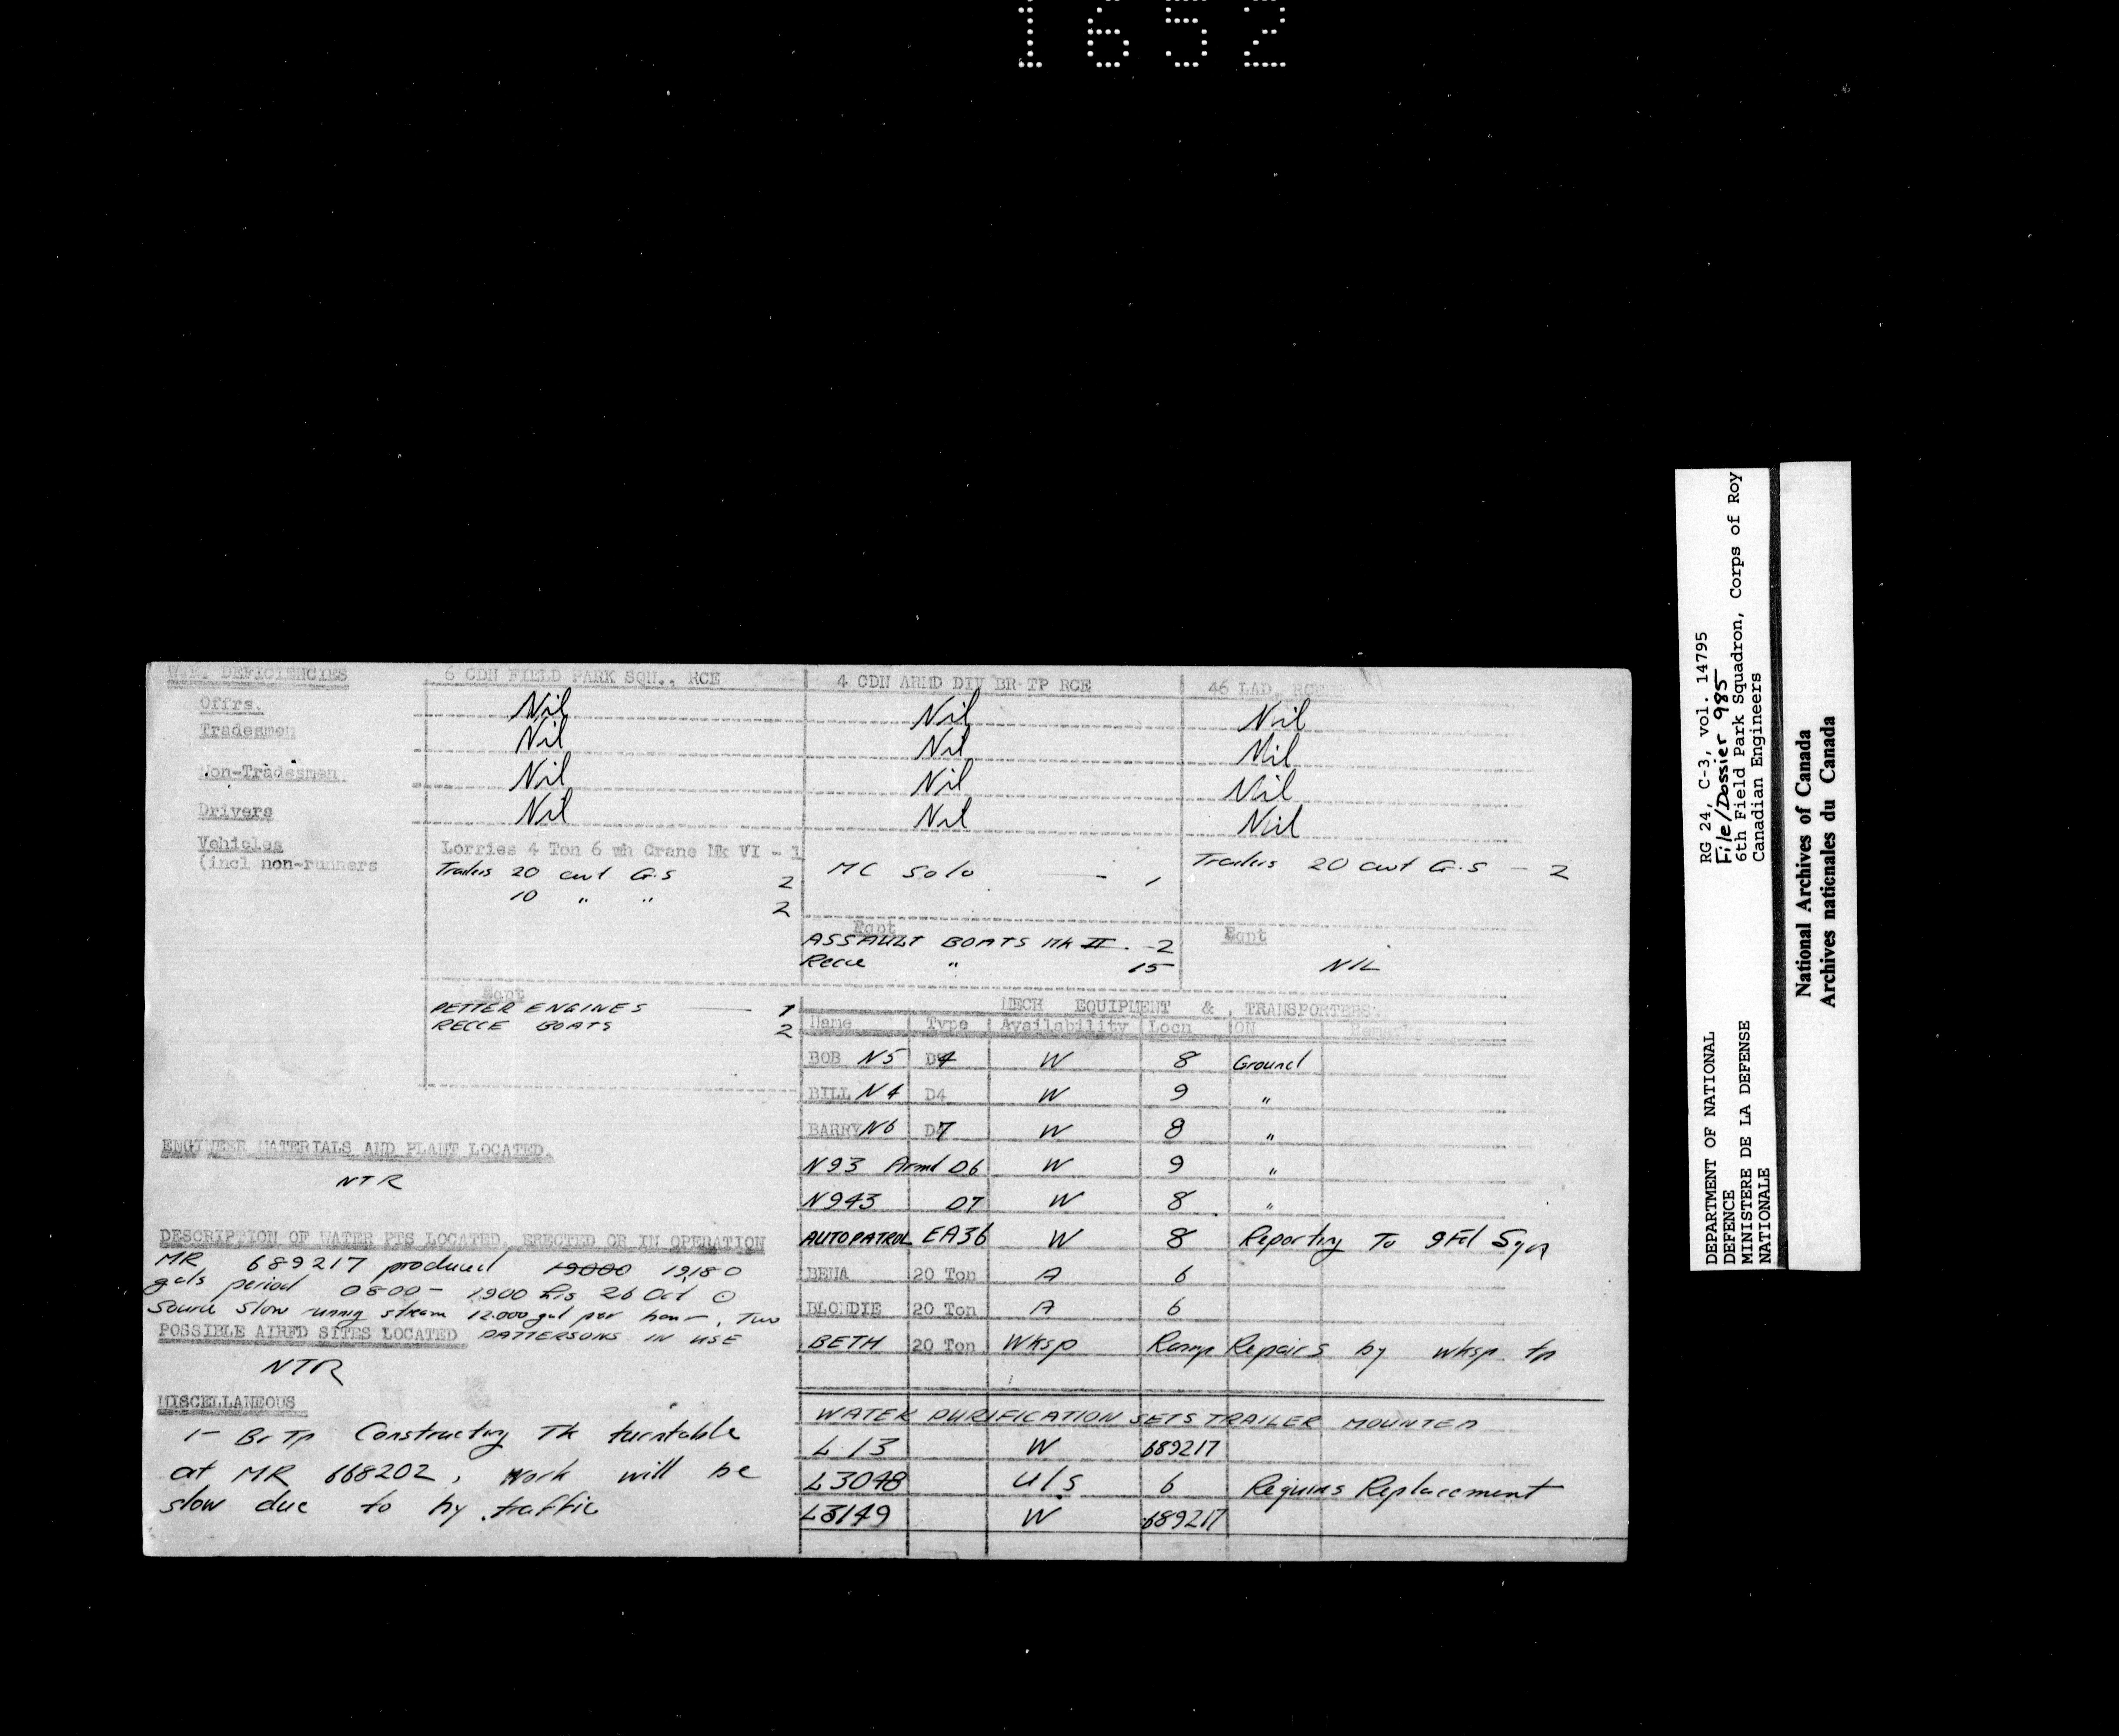 1652
W.E. DEFICIENCIES
6 CDN FIELD PARK SQN., RCE
4 CDN ARMD DIV BR TP RCE
46 LAD, RCE
Offrs. Nil Nil Nil
Tradesmen Nil Nil Nil
Non-Tradesmen Nil Nil Nil
Drivers Nil Nil Nil
Vehicles
(incl non-runners
Lorries 4 Ton 6 wh Crane Mk VI - 1
Trailers 20 cwt G.S 2
10 " " 2
MC Solo - 1
Trailers 20 cwt G.S - 2
Eqpt
ASSAULT BOATS Mk II. -2
Recce " 15
Eqpt
NIL
Eqpt
PETTER ENGINES 1
RECCE BOATS 2
MECH EQUIPMENT & TRANSPORTERS
Name Type Availability Locn ON Remarks
BOB N5 D4 W 8 Ground
BILL N4 D4 W 9 "
BARRY N6 D7 W 8 "
N93 Armd D6 W 9 "
N943 D7 W 8 "
AUTOPATROL EA36 W 8 Reporting To 9 Fd Sqn
BENA 20 Ton A 6
BLONDIE 20 Ton A 6
BETH 20 Ton Wksp Ramp Repairs by wksp tp
WATER PURIFICATION SETS TRAILER MOUNTED
L 13 W 689217
L3048 U/S 6 Requires Replacement
L3149 W 689217
ENGINEER MATERIALS AND PLANT LOCATED.
NTR
DESCRIPTION OF WATER PTS LOCATED, ERECTED OR IN OPERATION
MR 689217 produced 19000 19180
gals period 0800 - 1900 hrs 26 Oct
Source slow running stream 12.000 gal per hour. Two
PATTERSONS IN USE
POSSIBLE AIRFD SITES LOCATED
NTR
MISCELLANEOUS
1- Br Tp Constructing Tk turntable
at MR 668202, Work will be
slow due to hy traffic
RG 24, C-3, vol. 14795
File/Dossier 985
6th Field Park Squadron, Corps of Roy
Canadian Engineers
DEPARTMENT OF NATIONAL
DEFENCE
MINISTERE DE LA DEFENSE
NATIONALE
National Archives of Canada
Archives nationales du Canada